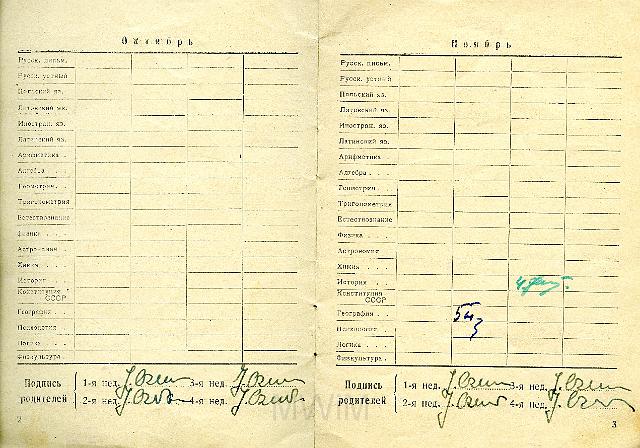 Октябрь
Русск. письм.
Русск. устный
Польский яз.
Литовский яз.
Иностран. яз.
Латинский яз.
Арифметика .
Алгебра . . .
Геометрия. .
Тригонометрия
Естествознание
Физика . . .
Астрономия .
Химия. . . .
История . . .
Конституция
СССР
География . .
Психология
Логика . . .
Физкультура .
Подпись
родителей
1-я нед.
3-я нед.
2-я нед.
4-я нед.
2
Ноябрь
Русск. письм.
Русск. устный
Польский яз.
Литовский яз.
Иностран. яз.
Латинский яз.
Арифметика
Алгебра . . .
Геометрия
Тригонометрия
Естествознание
Физика . . .
Астрономия
Химия . . .
История . . .
Конституция
СССР
География . .
Психология
Логика . . .
Физкультура .
Подпись
родителей
1-я нед.
3-я нед.
2-я нед.
4-я нед.
3